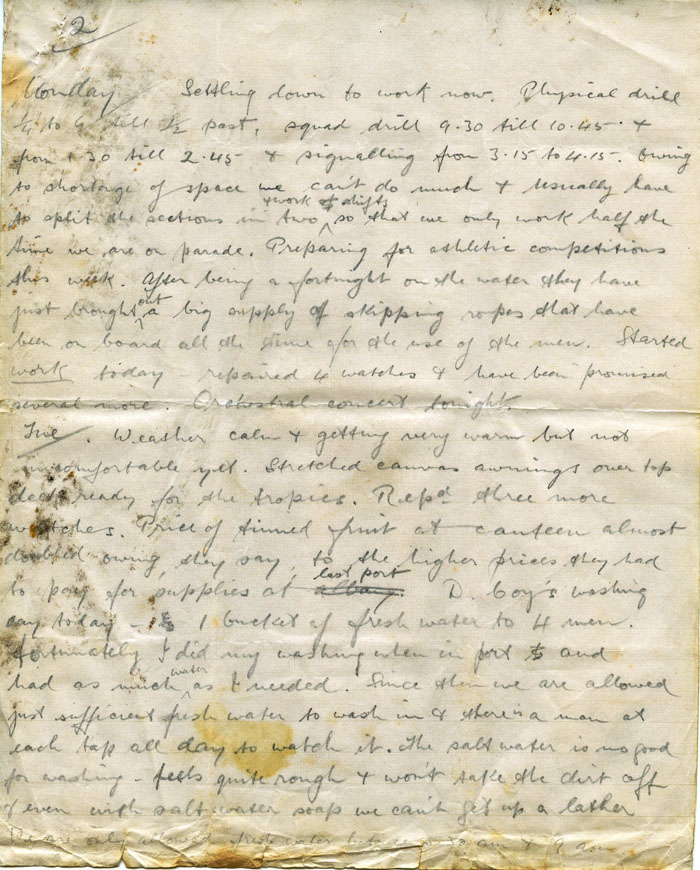 2
Monday Settling down to work now. Physical drill
1/4 to 6 till 1/2 past, squad drill 9.30 till 10.45 &
from 1.30 till 2.45 & signalling from 3.15 to 4.15. Owing
to shortage of space we can't do much & usually have
& work of shifts
to split the sections in two, so that we only work half the
time we are on parade. Preparing for athletic competitions
this week. After being a fortnight on the water they have
just brought out a big supply of skipping ropes that have
been on board all the time for the use of the men. Started
work today - repaired 4 watches & have been promised
several more. Orchestral concert tonight.
Tue. Weather calm & getting very warm but not
uncomfortable yet. Stretched canvas awnings over top
deck ready for the tropics. Repd three more
watches. Price of tinned fruit at canteen almost
doubled owing, they say, to the higher prices they had
to pay for supplies at albany last port. D. Coy's washing
day today - 1 bucket of fresh water to 4 men.
Fortunately I did my washing when in port and
had as much water as I needed. Since then we are allowed
just sufficient fresh water to wash in & there is a man at
each tap all day to watch it. The salt water is no good
for washing - feels quite rough & won't take the dirt off
& even with salt water soap we can't get up a lather
We are only allowed fresh water between am & 9 am